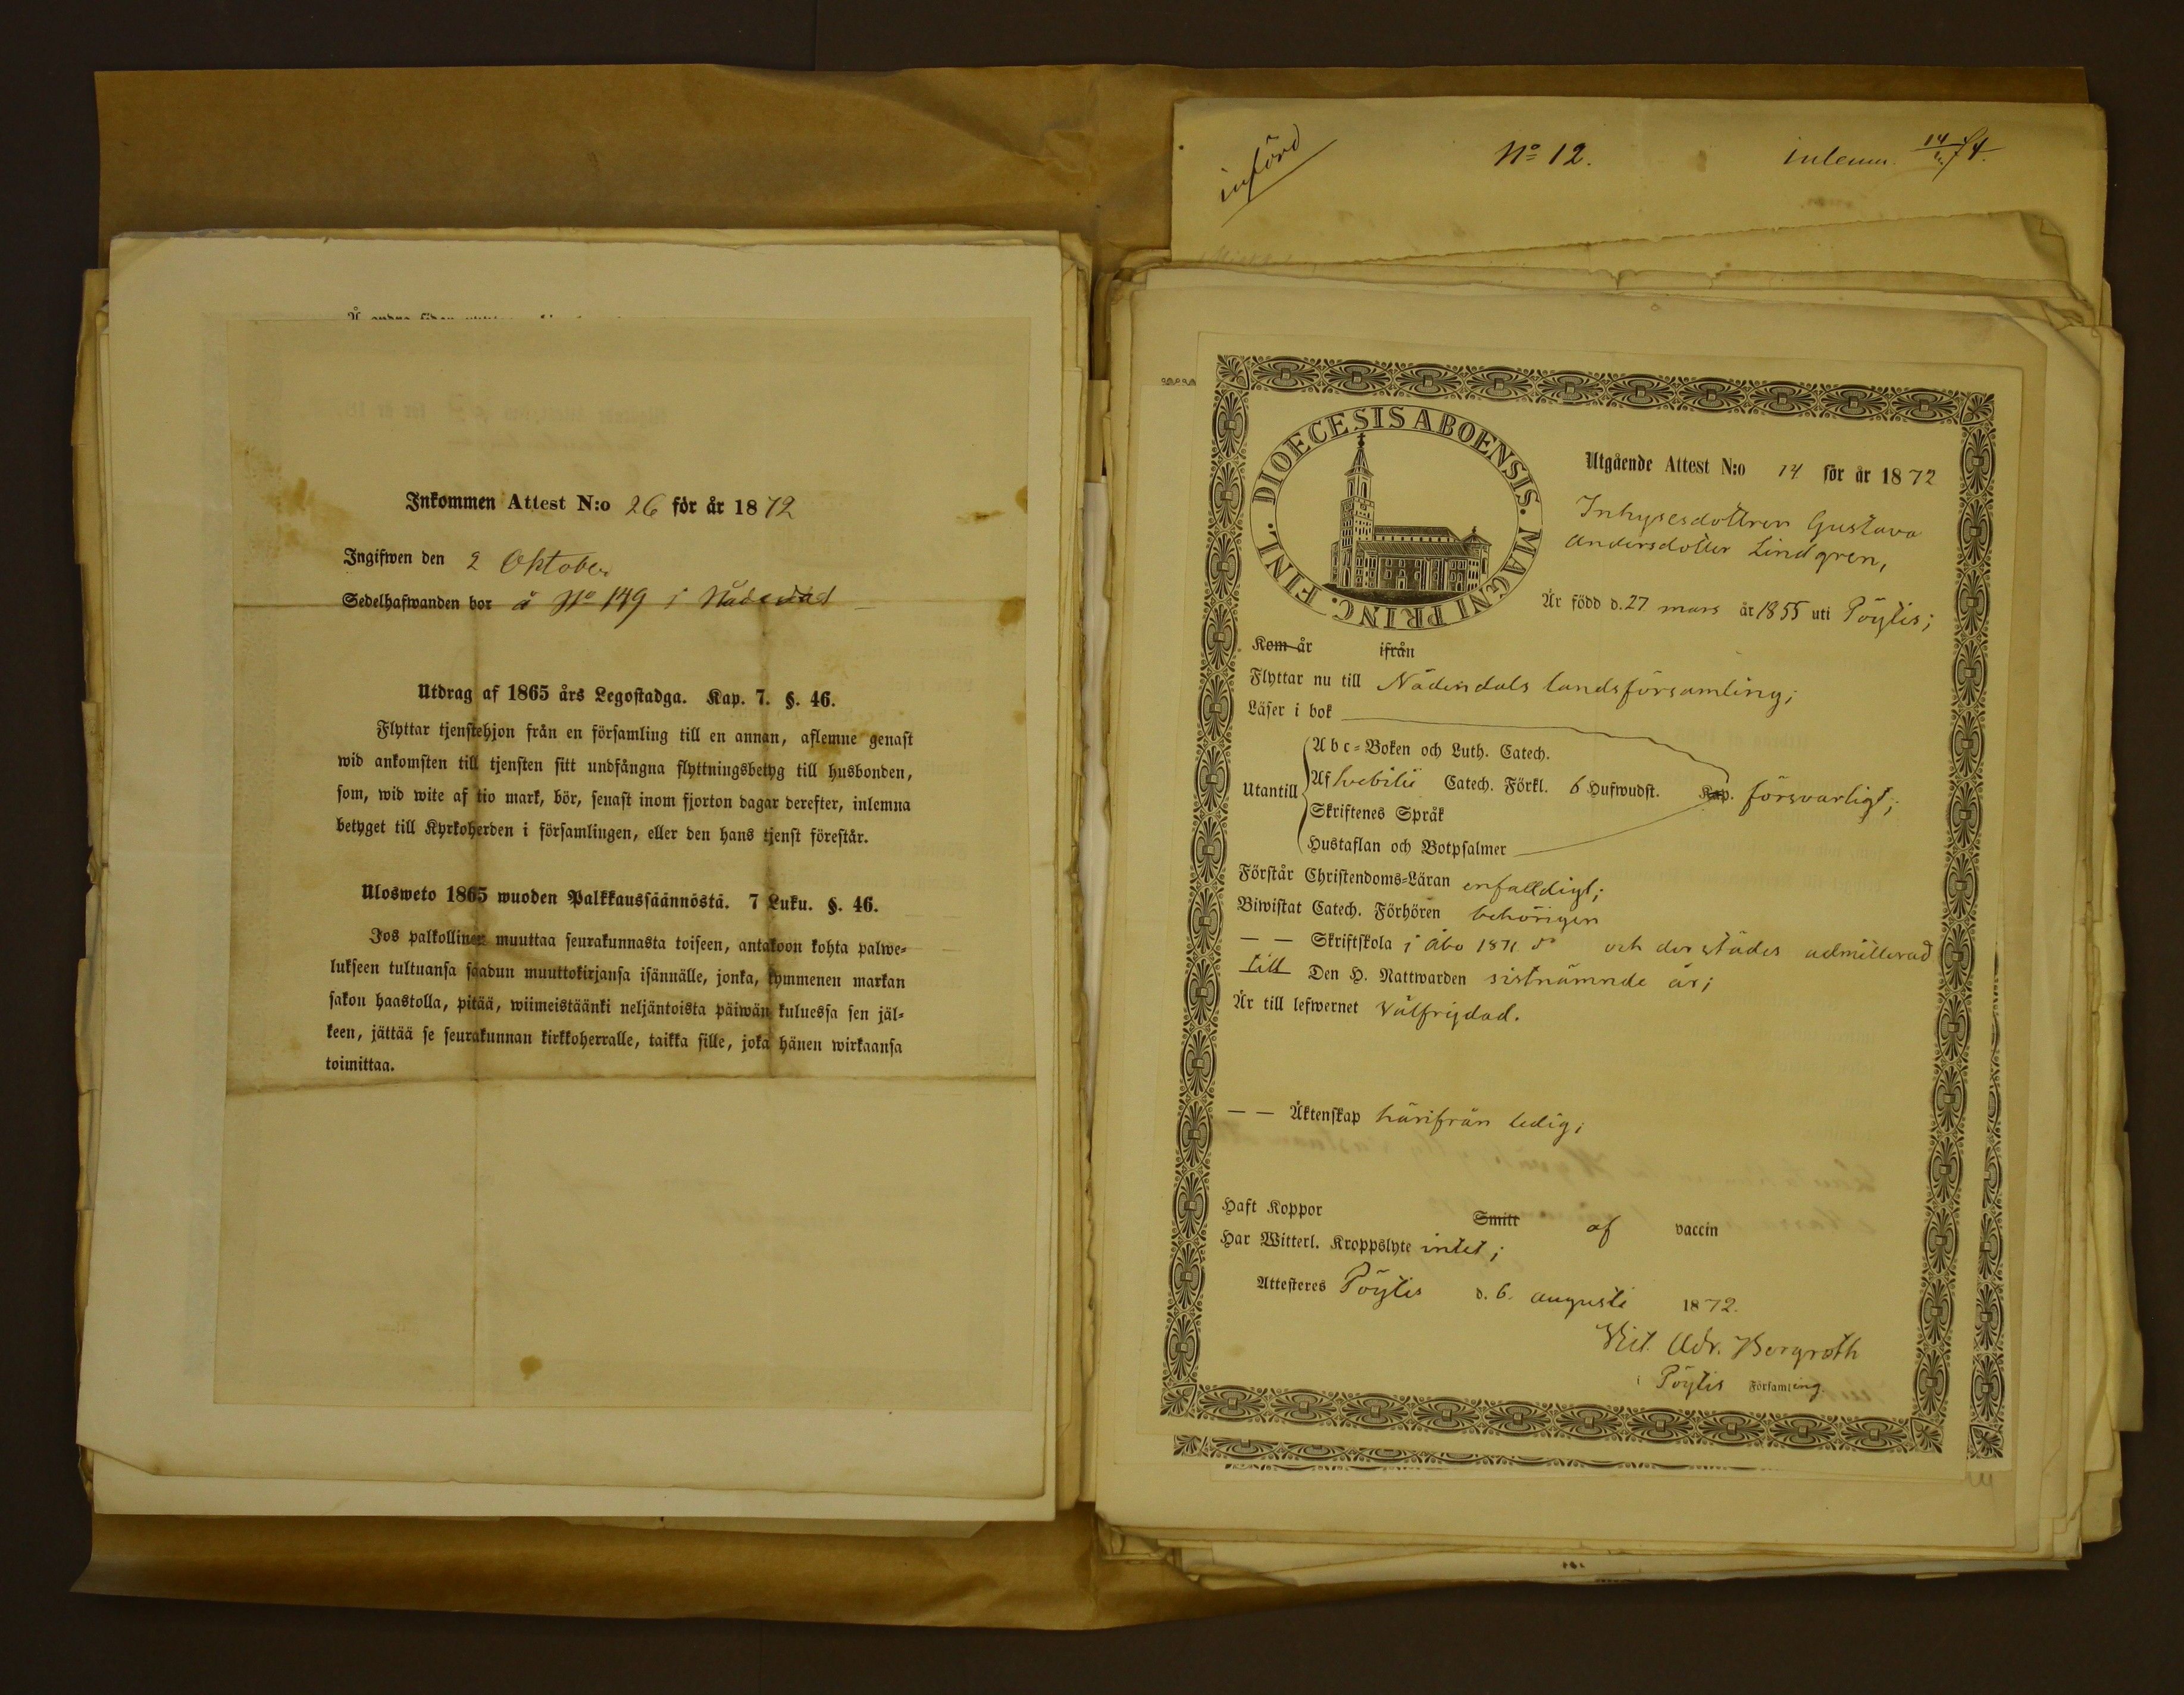 Inkommen Attest N:o 26 för år 1872
Ingifwen den 2 Oktober
Sedelhafwanden bor å No 149 i Nådendal
Utdrag af 1865 års Legostadga. Kap. 7. §. 46.
Flyttar tjenstehjon från en församling till en annan, aflemne genast
wid ankomsten till tjensten sitt undfångna flyttningsbetyg till husbonden,
som, wid wite af tio mark, bör, senast inom fjorton dagar derefter, inlemna
betyget till Kyrkoherden i församlingen, eller den hans tjenst förestår.
Ulosweto 1865 wuoden Palkkaussäännöstä. 7 Luku. §. 46.
Jos palkollinen muuttaa seurakunnasta toiseen, antakoon kohta palwe-
lukseen tultuansa saadun muuttokirjansa isännälle, jonka, kymmenen markan
sakon haastolla, pitää, wiimeistäänki neljäntoista päiwän kuluessa sen jäl-
keen, jättää se seurakunnan kirkkoherralle, taikka sille, joka hänen wirkaansa
toimittaa.
införd
No 12.
inlemn. 14/74.
DIOECESIS ABOENSIS. MAGNI PRINC. FINL.
Utgående Attest N:o 14 för år 1872
Inhysesdottren Gustava
Andersdotter Lindgren,
Är född d. 27 mars år 1855 uti Pöytis;
Kom år ifrån
Flyttar nu till Nådendals landsförsamling;
Läser i bok
Utantill
Abc-Boken och Luth. Catech.
Af Svebilii Catech. Förkl. 6 Hufwudst. Kap. försvarligt;
Skriftenes Språk
Hustaflan och Botpsalmer
Förstår Christendoms-Läran enfalldigt;
Biwistat Catech. Förhören behörigen
— — Skriftskola i Åbo 1871 och derstädes admitterad
till Den H. Nattwarden sistnämnde år;
Är till lefwernet välfrejdad.
— — Äktenskap härifrån ledig;
Haft Koppor Smitt af vaccin
Har Witterl. Kroppslyte intet;
Attesteres Pöytis d. 6. augusti 1872.
Vict. Adr. Bergroth
i Pöytis Församling.